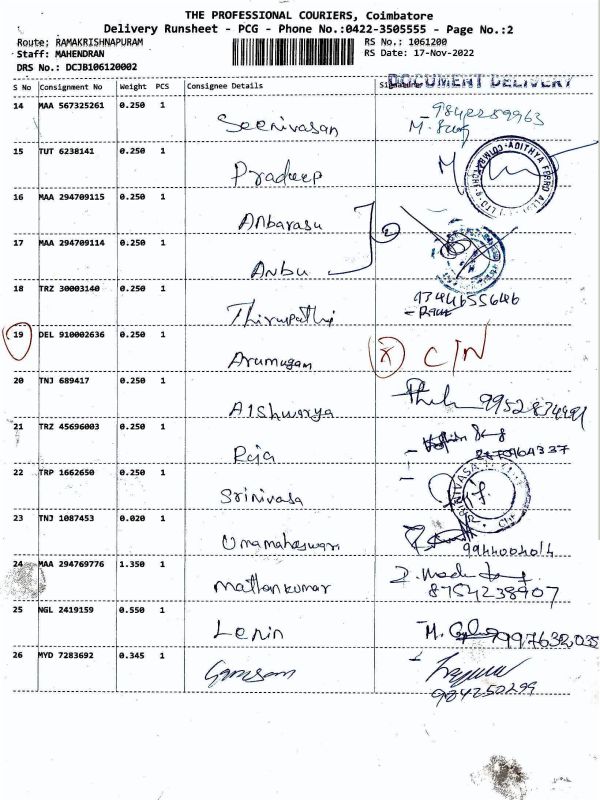 THE PROFESSIONAL COURIERS, Coimbatore
Delivery Runsheet - PCG - Phone No.:0422-3505555 - Page No.:2
Route: RAMAKRISHNAPURAM RS No.: 1061200
Staff: MAHENDRAN RS Date: 17-Nov-2022
DRS No.: DCJB106120002
DOCUMENT DELIVERY
S No Consignment No Weight PCS Consignee Details Signature
14 MAA 567325261 0.250 1 Seenivasan 9842289963
15 TUT 6238141 0.250 1 Pradeep M
16 MAA 294709115 0.250 1 Anbarasu 2
17 MAA 294709114 0.250 1 Anbu
18 TRZ 30003140 0.250 1 Thirupathi 9344655646
19 DEL 910002636 0.250 1 Arumugam x C/N
20 TNJ 689417 0.250 1 Aishwarya
21 TRZ 45696003 0.250 1 Raja
22 TRP 1662650 0.250 1 Srinivasa SRINIVASA
23 TNJ 1087453 0.020 1 Umamaheswari 9944004014
24 MAA 294769776 1.350 1 Mathankumar 8754238907
25 NGL 2419159 0.550 1 Lenin 9997632035
26 MYD 7283692 0.345 1 Ganesan 984250299